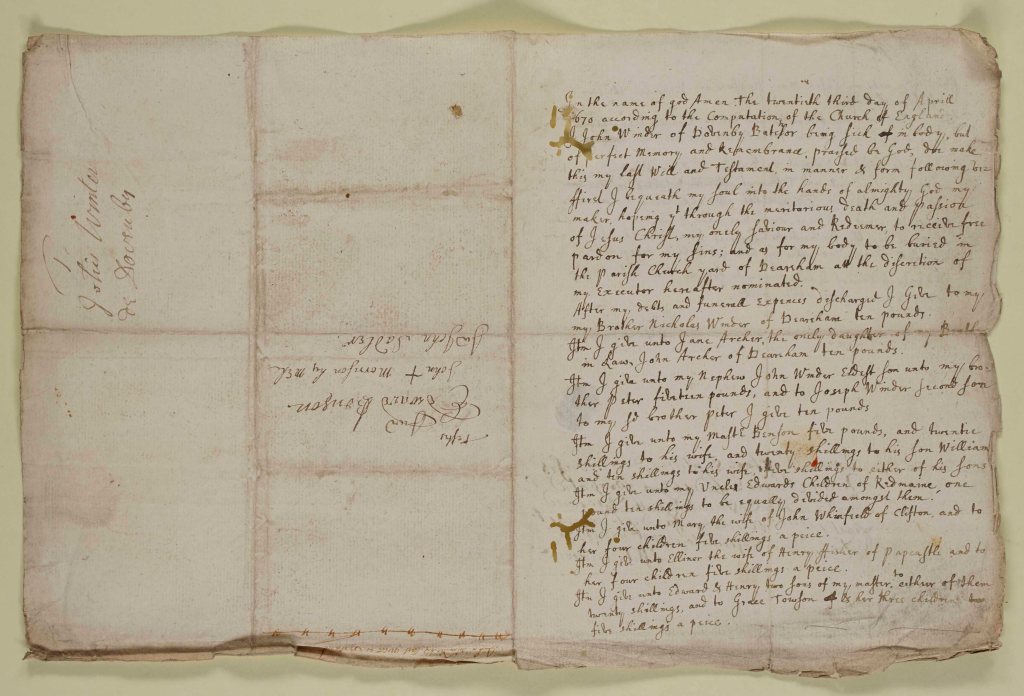 T
Johis Winder
de Dovenby
testes
Jur
Edward Benson
John + Morrison his mark
Jur John Sadler
In the name of god Amen The twentieth third day of Aprill
1670 according to the Computation of the Church of England
I John Winder of Dovenby Batchlor being sick of in body, but
of perfect Memory and Remembrance, praised be God, doe make
this my last Will and Testament, in manner & form following viz
ffirst I bequeath my soul into the hands of almighty God my
maker, hoping yt through the meritorious death and passion
of Jesus Christ, my onely saviour and Redeemer to receive free
pardon for my sins; and as for my body to be buried in
the Parish Church yard of Dearsham att the discretion of
my Executor hereafter nominated.
After my debts and funerall Expences discharged I Give to my
my Brother Nicholas Winder of Dearsham ten pounds.
Itm I give unto Jane Archer, the onely daughter of my Broth
in Law, John Archer of Dearsham ten pounds.
Itm I give unto my Nephew John Winder Eldest son unto my bro-
ther Peter fifteen pounds, and to Joseph Winder second son
to my sd brother Peter I give ten pounds
Itm I give unto my Mastr Benson five pounds, and twentie
shillings to his wife, and twenty shillings to his son William
and ten shillings to his wife five shillings to either of his sons
Itm I give unto my Uncles Edwards Children of Redmaine one
pound ten shillings to be equally divided amongst them.
Itm I give unto Mary the wife of John Whinfield of Clifton, and to
her four children five shillings a peice.
Itm I give unto Ellinor the wife of Henry ffisher of Papcastle and to
her four children five shillings a peice.
Itm I give unto Edward & Henry two sons of my master, to either of them
twenty shillings, and to Grace Towson & her three children
five shillings a peice.